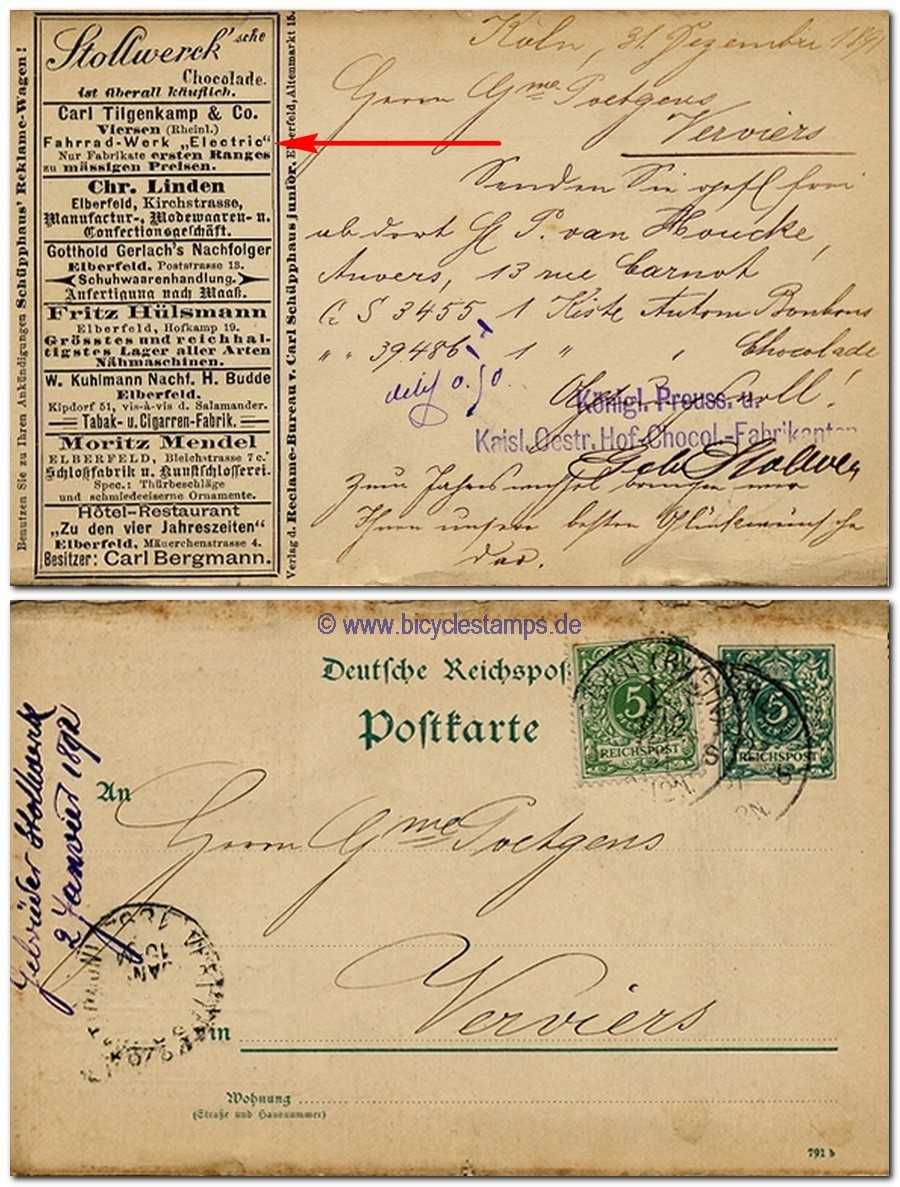 Benutzen Sie zu Ihren Ankündigungen Schüpphaus' Reklame-Wagen!
Stollwerck'sche
Chocolade.
ist überall käuflich.
Carl Tilgenkamp & Co.
Viersen (Rheinl.)
Fahrrad-Werk „Electric“
Nur Fabrikate ersten Ranges
zu mässigen Preisen.
Chr. Linden
Elberfeld, Kirchstrasse,
Manufactur-, Modewaaren- u.
Confectionsgeschäft.
Gotthold Gerlach's Nachfolger
Elberfeld, Poststrasse 13.
Schuhwaarenhandlung.
Anfertigung nach Maaß.
Fritz Hülsmann
Elberfeld, Hofkamp 19.
Grösstes und reichhal-
tigstes Lager aller Arten
Nähmaschinen.
W. Kuhlmann Nachf. H. Budde
Elberfeld.
Kipdorf 51, vis-à-vis d. Salamander.
Tabak- u. Cigarren-Fabrik.
Moritz Mendel
ELBERFELD, Bleichstrasse 7c.
Schloßfabrik u. Kunstschlosserei.
Spec.: Thürbeschläge
und schmiedeeiserne Ornamente.
Hôtel-Restaurant
„Zu den vier Jahreszeiten“
Elberfeld, Mäuerchenstrasse 4.
Besitzer: Carl Bergmann.
Verlag d. Reclame-Bureau v. Carl Schüpphaus junior, Elberfeld, Altenmarkt 15.
Köln, 31. Dezember 1891
Herrn Gme Poetgens
Verviers
Senden Sie gefl frei
ab dort P. van Houcke,
Anvers, 13 rue Carnot
G S 3455 1 Kiste Autom Bonbons
" " 39486 1 " " Chocolade
0.50.
Königl. Preuss. u.
Kaisl. Oestr. Hof-Chocol.-Fabrikanten
Gebr Stollwerck
Zum Jahreswechsel bringen wir
Ihnen unsere besten Glückwünsche
dar.
© www.bicyclestamps.de
Deutsche Reichspost
Postkarte
5
REICHSPOST
5
REICHSPOST
Gebrüder Stollwerck
2 Janvier 1892
An
Herrn Gme Poetgens
in
Verviers
Wohnung
(Straße und Hausnummer)
791 b